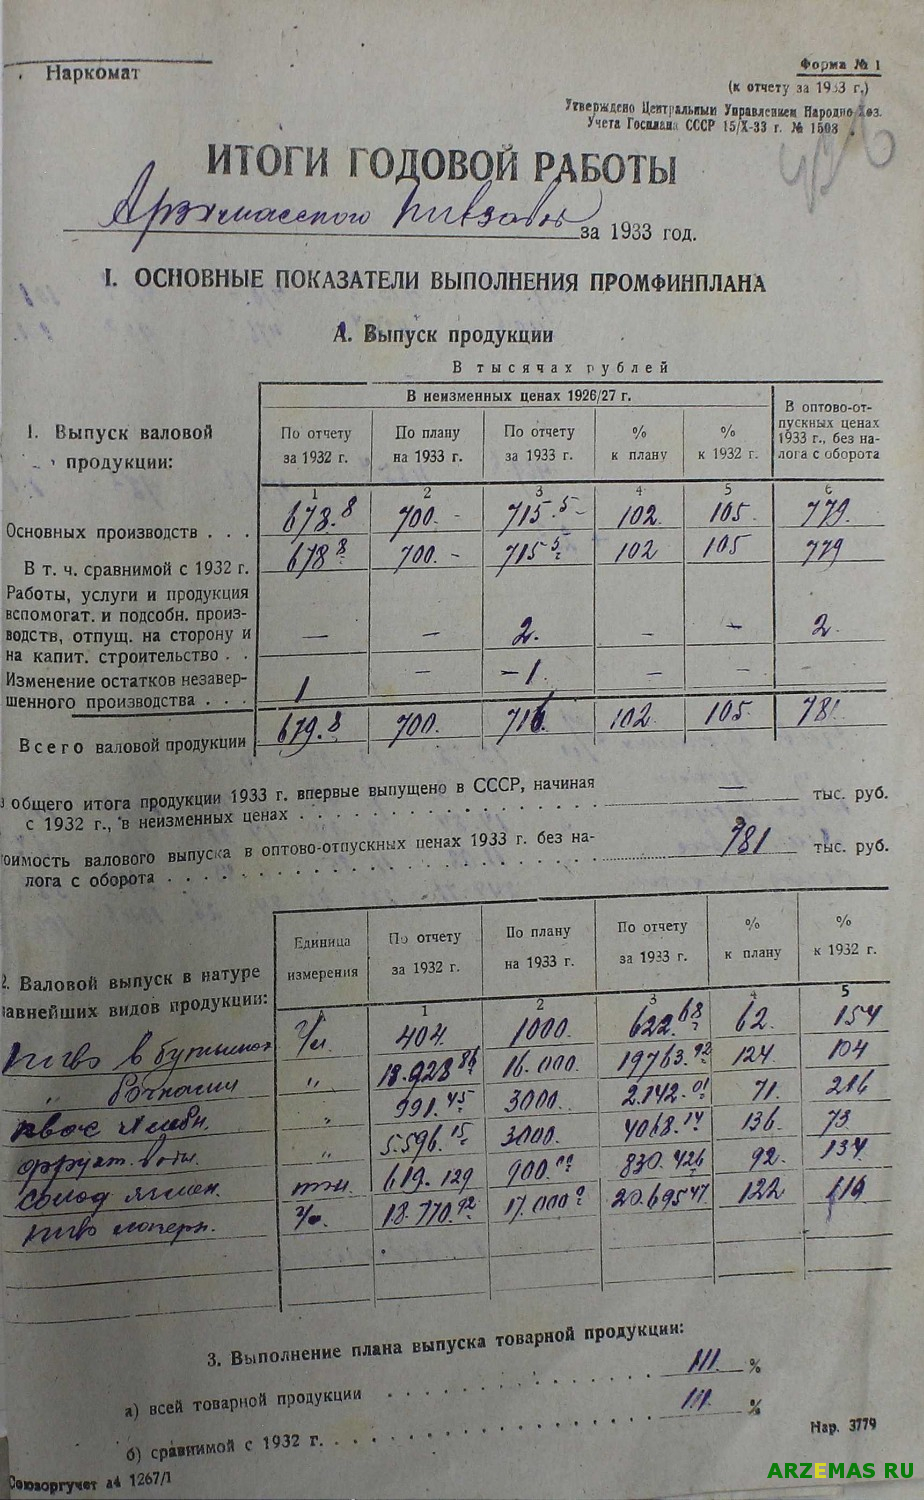 Наркомат
Форма № 1
(к отчету за 1933 г.)
Утверждено Центральным Управлением Народно-Хоз.
Учета Госплана СССР 15/X-33 г. № 1503
ИТОГИ ГОДОВОЙ РАБОТЫ
Арзамасского Пивзавода за 1933 год.
I. ОСНОВНЫЕ ПОКАЗАТЕЛИ ВЫПОЛНЕНИЯ ПРОМФИНПЛАНА
А. Выпуск продукции
В тысячах рублей
1. Выпуск валовой продукции:
В неизменных ценах 1926/27 г.
По отчету за 1932 г. По плану на 1933 г. По отчету за 1933 г. % к плану % к 1932 г. В оптово-отпускных ценах 1933 г., без налога с оборота
1 2 3 4 5 6
Основных производств . . . 678.8 700.- 715.5- 102. 105. 779.
В т. ч. сравнимой с 1932 г. 678 8 700.- 715 5 102 105 779
Работы, услуги и продукция
вспомогат. и подсобн. произ-
водств, отпущ. на сторону и
на капит. строительство . . — — 2. - - 2.
Изменение остатков незавер-
шенного производства . . . 1 — -1. — - -
Всего валовой продукции 679.8 700. 716. 102. 105. 781.
общего итога продукции 1933 г. впервые выпущено в СССР, начиная
с 1932 г., в неизменных ценах . . . — тыс. руб.
оимость валового выпуска в оптово-отпускных ценах 1933 г. без на-
лога с оборота . . . 781 тыс. руб.
2. Валовой выпуск в натуре
авнейших видов продукции:
Единица измерения По отчету за 1932 г. По плану на 1933 г. По отчету за 1933 г. % к плану % к 1932 г.
А 1 2 3 4 5
Пиво в бутылках г/л. 404. 1000. 622.68 62. 154
" Бочками " 18.928 86 16.000. 19763.92 124. 104
Квас хлебн. " 991.45 3000. 2.142.01 71. 216
фрукт. воды. " 5.596.15 3000. 4068.14 136. 73
Солод ячмен. тон. 619.129 900.00 830.426 92. 134
Пиво г/л. 18.770.92 17.000 20.695 47 122 110
3. Выполнение плана выпуска товарной продукции:
а) всей товарной продукции . . . 111. %
б) сравнимой с 1932 г. . . . 111. %
Нар. 3779
Союзоргучет 1267/1
ARZEMAS RU